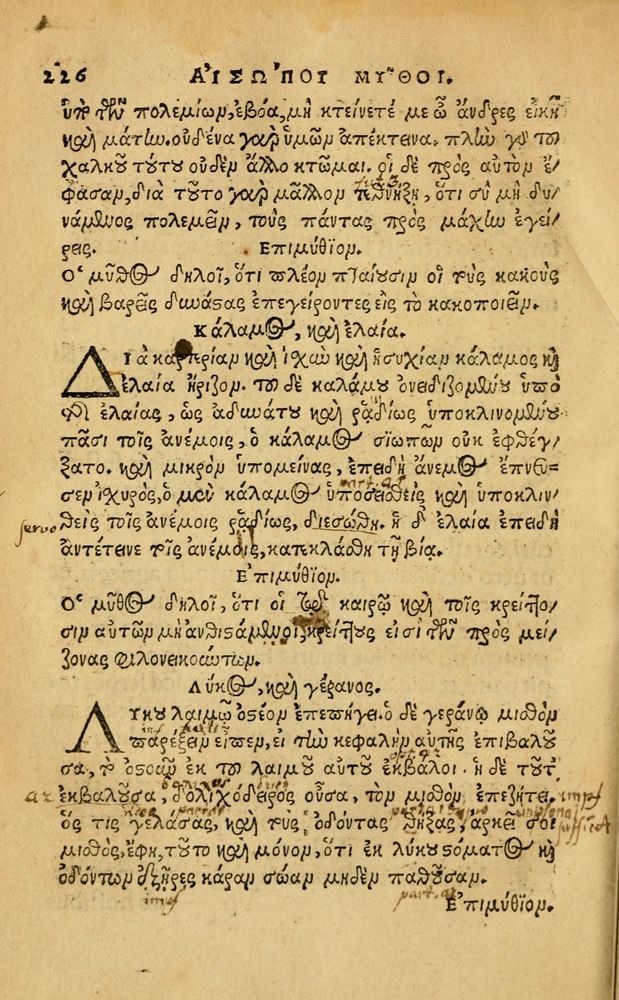 226 ΑἸΣΩ´ΠΟΥ ΜΥ῀ΘΟΙ.
ὑπὸ τῶν πολεμίων, ἐβόα, μὴ κτείνετέ με ὦ ἄνδρες εἰκῆ
καὶ μάτην. οὐδένα γὰρ ὑμῶν ἀπέκτεινα. πλὴν γὰρ τοῦ
χαλκοῦ τούτου οὐδὲν ἄλλο κτῶμαι. οἱ δὲ πρὸς αὐτὸν ἔ/
φασαν, διὰ τοῦτο γὰρ μᾶλλον τεθνήξῃ, ὅτι σὺ μὴ δυ/
νάμενος πολεμεῖν, τοὺς πάντας πρὸς μάχην ἐγεί/
ρεις. Ἐπιμύθιον.
Ὁ μῦθος δηλοῖ, ὅτι πλέον πταίουσιν οἱ τοὺς κακοὺς
καὶ βαρεῖς δυνάστας ἐπεγείροντες εἰς τὸ κακοποιεῖν.
Κάλαμος, καὶ ἐλαία.
ΔΙὰ καρτερίαν καὶ ἰχὺν καὶ ἡσυχίαν κάλαμος καὶ
ἐλαία ἤριζον. τοῦ δὲ καλάμου ὀνειδιζομένου ὑπὸ
τῆς ἐλαίας, ὡς ἀδυνάτου καὶ ῥᾳδίως ὑποκλινομένου
πᾶσι τοῖς ἀνέμοις, ὁ κάλαμος σιωπῶν οὐκ ἐφθέγ/
ξατο. καὶ μικρὸν ὑπομείνας, ἐπειδὴ ἄνεμος ἔπνευ=
σεν ἰχυρὸς, ὁ μὲν κάλαμος ὑποσεισθεὶς καὶ ὑποκλιν/
θεὶς τοῖς ἀνέμοις ῥᾳδίως, διεσώθη. ἡ δ' ἐλαία ἐπειδὴ
servo
ἀντέτεινε τοῖς ἀνέμοις, κατεκλάσθη τῇ βίᾳ.
Ἐπιμύθιον.
Ὁ μῦθος δηλοῖ, ὅτι οἱ τῷ καιρῷ καὶ τοῖς κρείττο/
σιν αὐτῶν μὴ ἀνθιστάμενοι, κρείττους εἰσὶ τῶν πρὸς μεί/
ζονας φιλονεικούντων.
Λύκος, καὶ γέρανος.
ΛΥκου λαιμῷ ὀστέον ἐπεπήγει. ὁ δὲ γεράνῳ μισθὸν
παρέξειν εἶπεν, εἰ τὴν κεφαλὴν αὐτῆς ἐπιβαλοῦ
σα, τὸ ὀστοῦν ἐκ τοῦ λαιμοῦ αὐτοῦ ἐκβάλοι. ἡ δὲ τοῦτ'
ἐκβαλοῦσα, δολιχόδειρος οὖσα, τὸν μισθὸν ἐπεζήτει.
impf
ὅς τις γελάσας, καὶ τοὺς ὀδόντας θήξας, ἀρκεῖ σοι
sufficit
μισθὸς, ἔφη, τοῦτο καὶ μόνον, ὅτι ἐκ λύκου στόματος καὶ
ὀδόντων ἐξῆρες κάραν σώαν μηδὲν παθοῦσαν.
impf part. a
Ἐπιμύθιον.